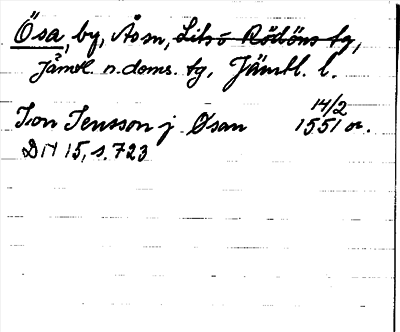 Ösa, by, Ås sn, Lits o Rödöns tg,
Jämtl. n. doms. tg, Jämtl. l.
Jon Jensson j Øsan 14/2 1551 or.
DN 15, s. 723